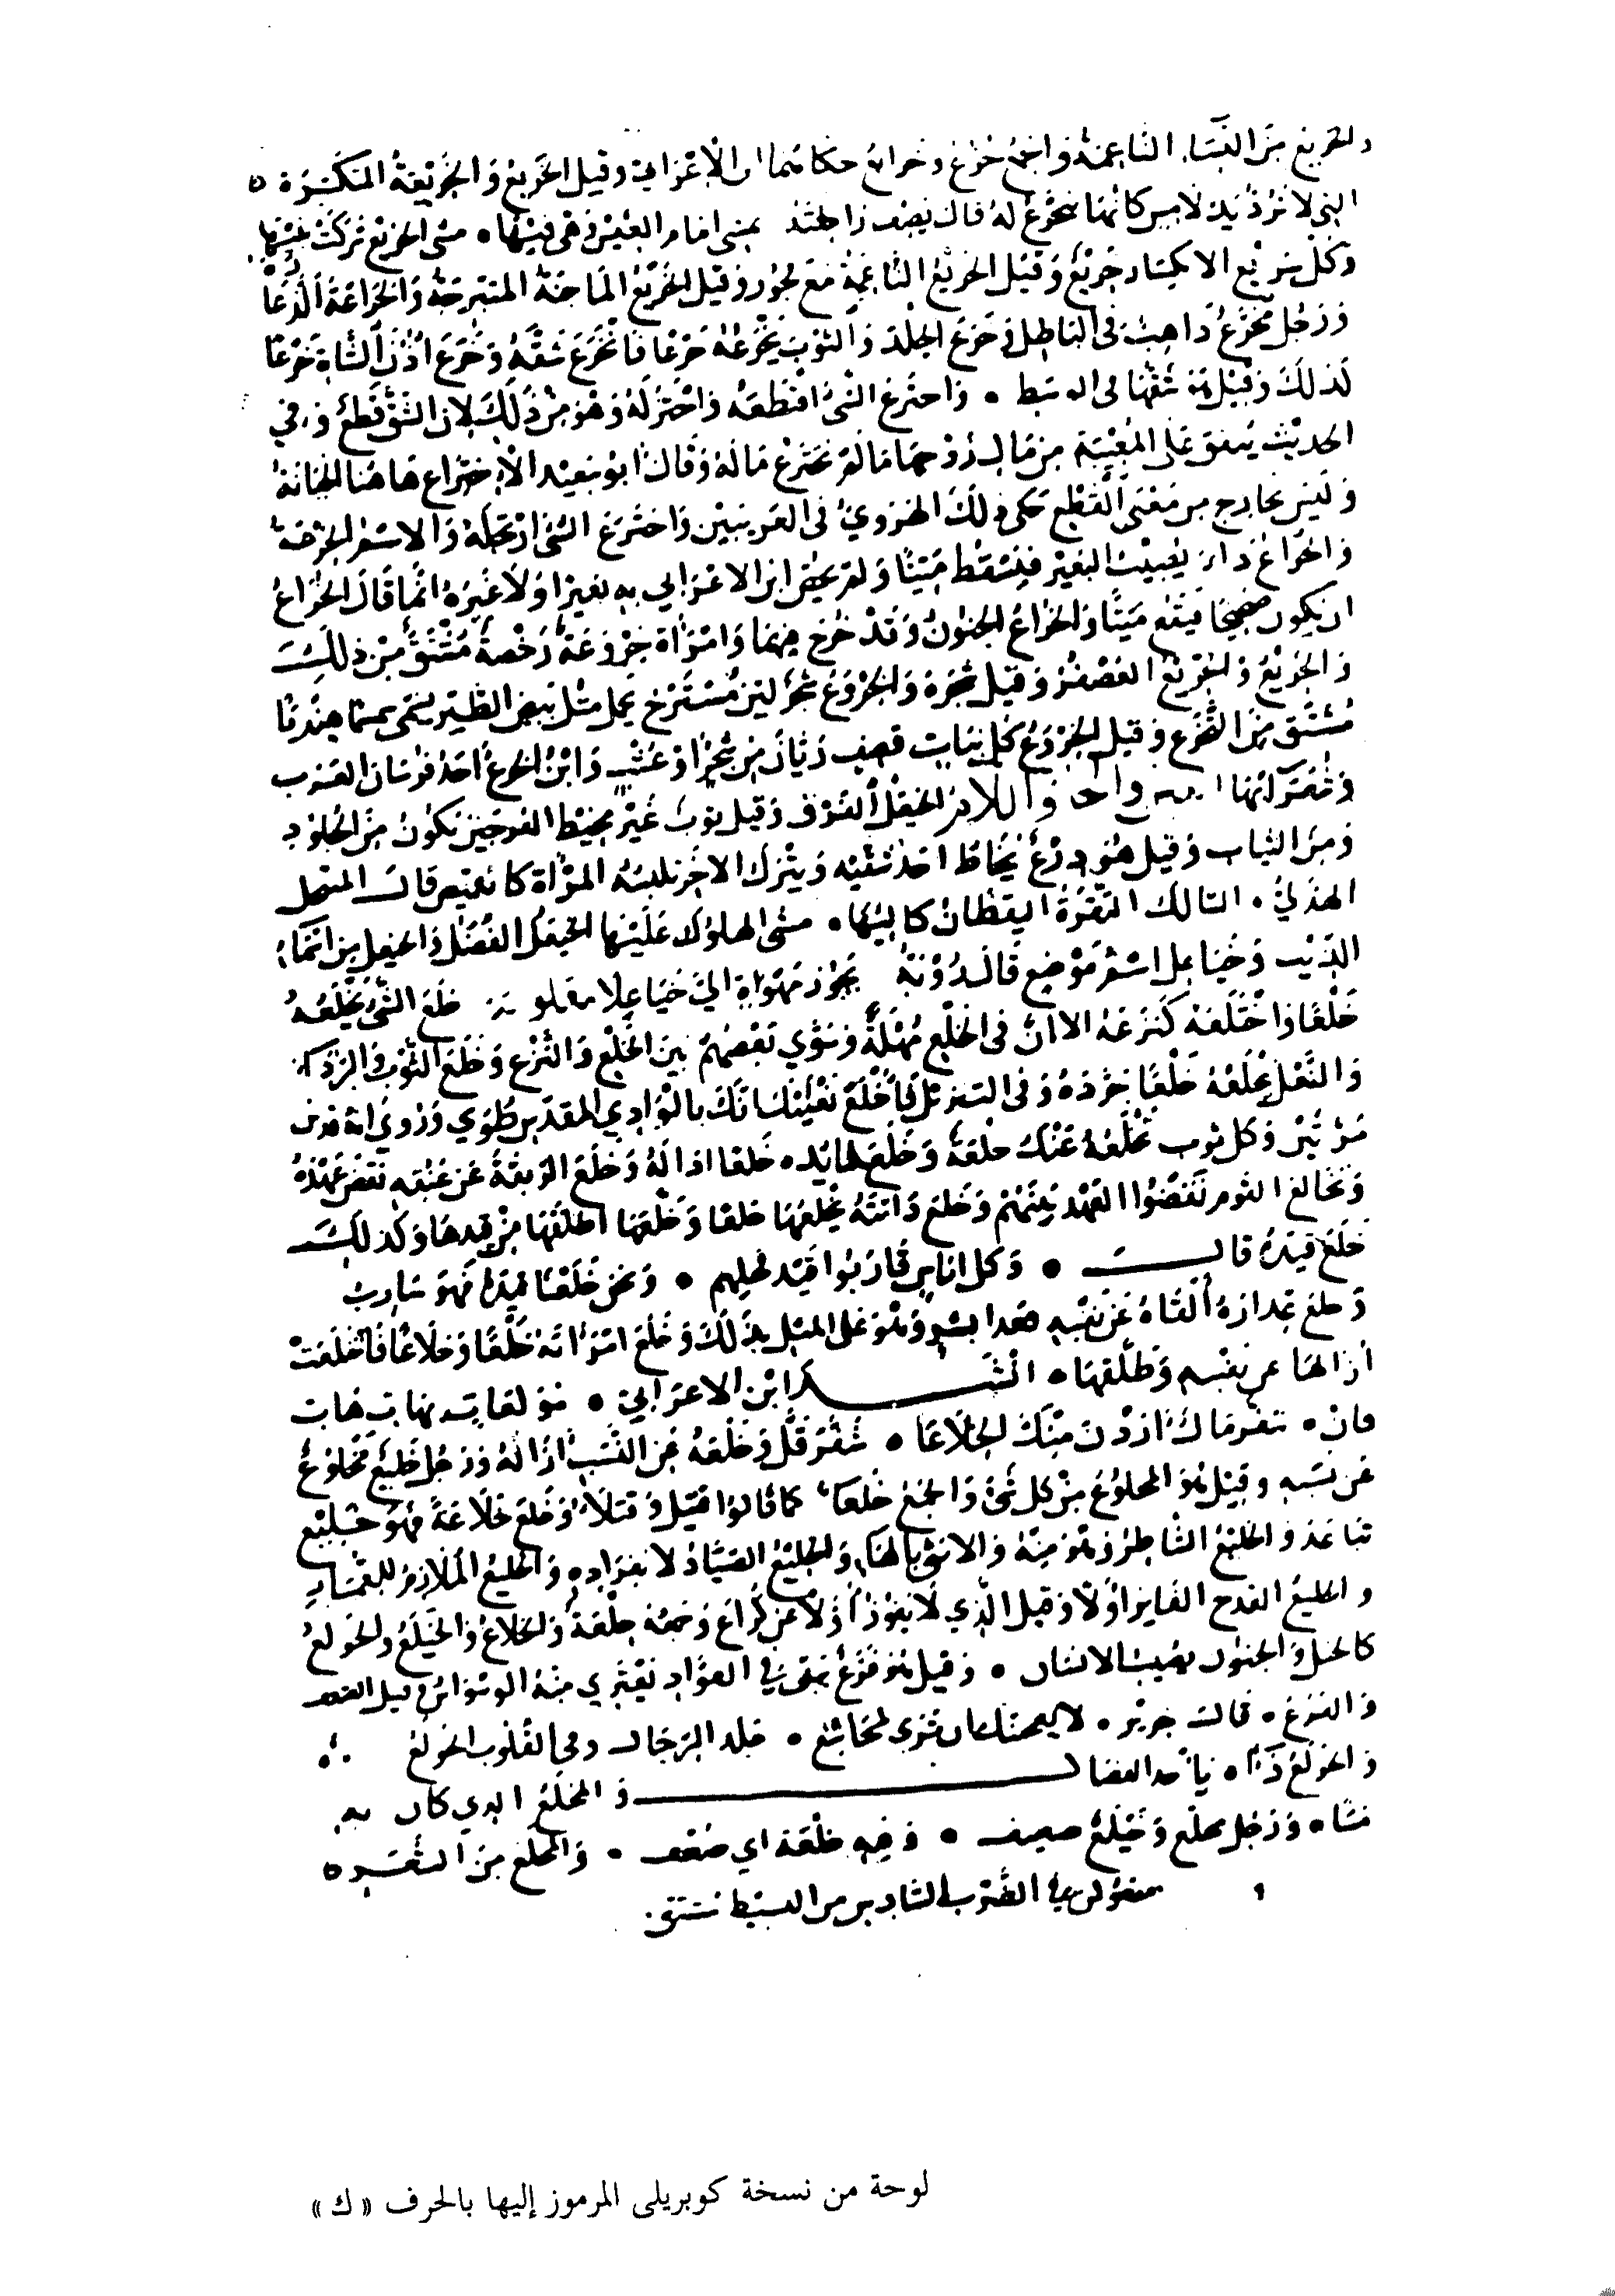 والخريع من النساء الناعمة والجمع خروع وخرائع حكاهما ابن الأعرابي وقيل الخريع والخريعة المتكسرة
التي لا ترد يد لامس كأنها تتخرع له قال يصف راحلته تمشي امام العيس وهي فيها مشي الخريع تركت بنيها
وكل سريع الانكسار خريع وقيل الخريع الناعمة مع فجور وقيل الخريع الماجنة المتبرجة والخراعة الدعارة
ورجل مخرع ذاهب في الباطل وخرع الجلدة والثوب يخرعه خرعا فانخرع شقه وخرع اذن الشاة خرعا
كذلك وقيل هو شقها في الوسط واخترع الشيء اقتطعه واختزله وهو من ذلك لان الشق قطع وفي
الحديث ينفق على المغيبة من مال زوجها ما لم تخترع ماله وقال ابو سعيد الاختراع هاهنا الخيانة
وليس بخارج من معنى القطع حكى ذلك الهروي في الغريبين واخترع الشيء ارتجله والاسم الخرعة
والخراع داء يصيب البعير فيسقط ميتا ولم يخص ابن الاعرابي به بعيرا ولا غيره انما قال الخراع
ان يكون صحيحا فيقع ميتا والخراع الجنون وقد خرع فيهما وامراة خروعة رخصة مشتق من ذلك
والخريع والخريع العصفر وقيل شجرة والخروع شجر لين مسترخ يحمل مثل بيض الطير يسمى سمسما هنديا
مشتق من التخرع وقيل الخروع كل نبات قصف ريان من شجر او عشب وابن الخرع احد فرسان العرب
وشعرائها والخيعل الفرو وقيل ثوب غير مخيط الفرجين يكون من الجلود
ومن الثياب وقيل هو درع يخاط احد شقيه ويترك الاخر تلبسه المرأة كالقميص قال المتنخل
الهذلي السالك الثغرة اليقظان كاليها مشي الهلوك عليها الخيعل الفضل والخيعل من اسماء
الذيب وخياعل اسم موضع قال رؤبة خلع الشيء يخلعه
خلعا واختلعه كنزعه الا ان في الخلع مهلة وسوى بعضهم بين الخلع والنزع وخلع الثوب والرداء
والنعل يخلعه خلعا جرده وفي التنزيل فاخلع نعليك انك بالوادي المقدس طوى وروي انه قدس
مرتين وكل ثوب تخلعه عنك خلعة وخلع قايده خلعا اذاله وخلع الربقة عن عنقه نقض عهده
وتخالع القوم نقضوا العهد بينهم وخلع دابته يخلعها خلعا وخلعها اطلقها من قيدها وكذلك
خلع قيده قال وكل اناس قاربوا قيد فحلهم ونحن خلعنا قيده فهو سارب
وخلع عذاره ألقاه عن نفسه فعدا بشر وهو على المثل بذلك وخلع امرأته خلعا وخلاعا فاختلعت
أزالها عن نفسه وطلقها انشد ابن الاعرابي مولعات بهات هات
فان شفر مالك اردن منك الخلاعا شفر قل وخلعه عن النسب أزاله ورجل خليع مخلوع
عن نسبه وقيل هو المخلوع من كل شيء والجمع خلعاء كما قالوا قتيل وقتلاء وخلع خلاعة فهو خليع
تباعد والخليع الشاطر وهو منه والانثى بالهاء والخليع الصياد لانفراده والخليع الملازم للقمار
والخليع القدح الفايز اولا وقيل الذي لا يفوز أولا عن كراع وجمعه خلعة والخلاع والخيلع والخولع
كالخبل والجنون يصيب الانسان وقيل هو فزع يبقى في الفؤاد يعتري منه الوسواس وقيل الضعف
والفزع قال جرير لا يعجبنك ان ترى لمجاشع جلد الرجال وفي القلوب الخولع
والخولع داء يأخذ الفصال والمخلع الذي كان به
مسا ورجل مخلع وخيلع ضعيف وفيه خلعة اي ضعف والمخلع من الشعر
مفعولن في الضرب السادس من البسيط مشتق
لوحة من نسخة كوبريلى المرموز إليها بالحرف « ك »